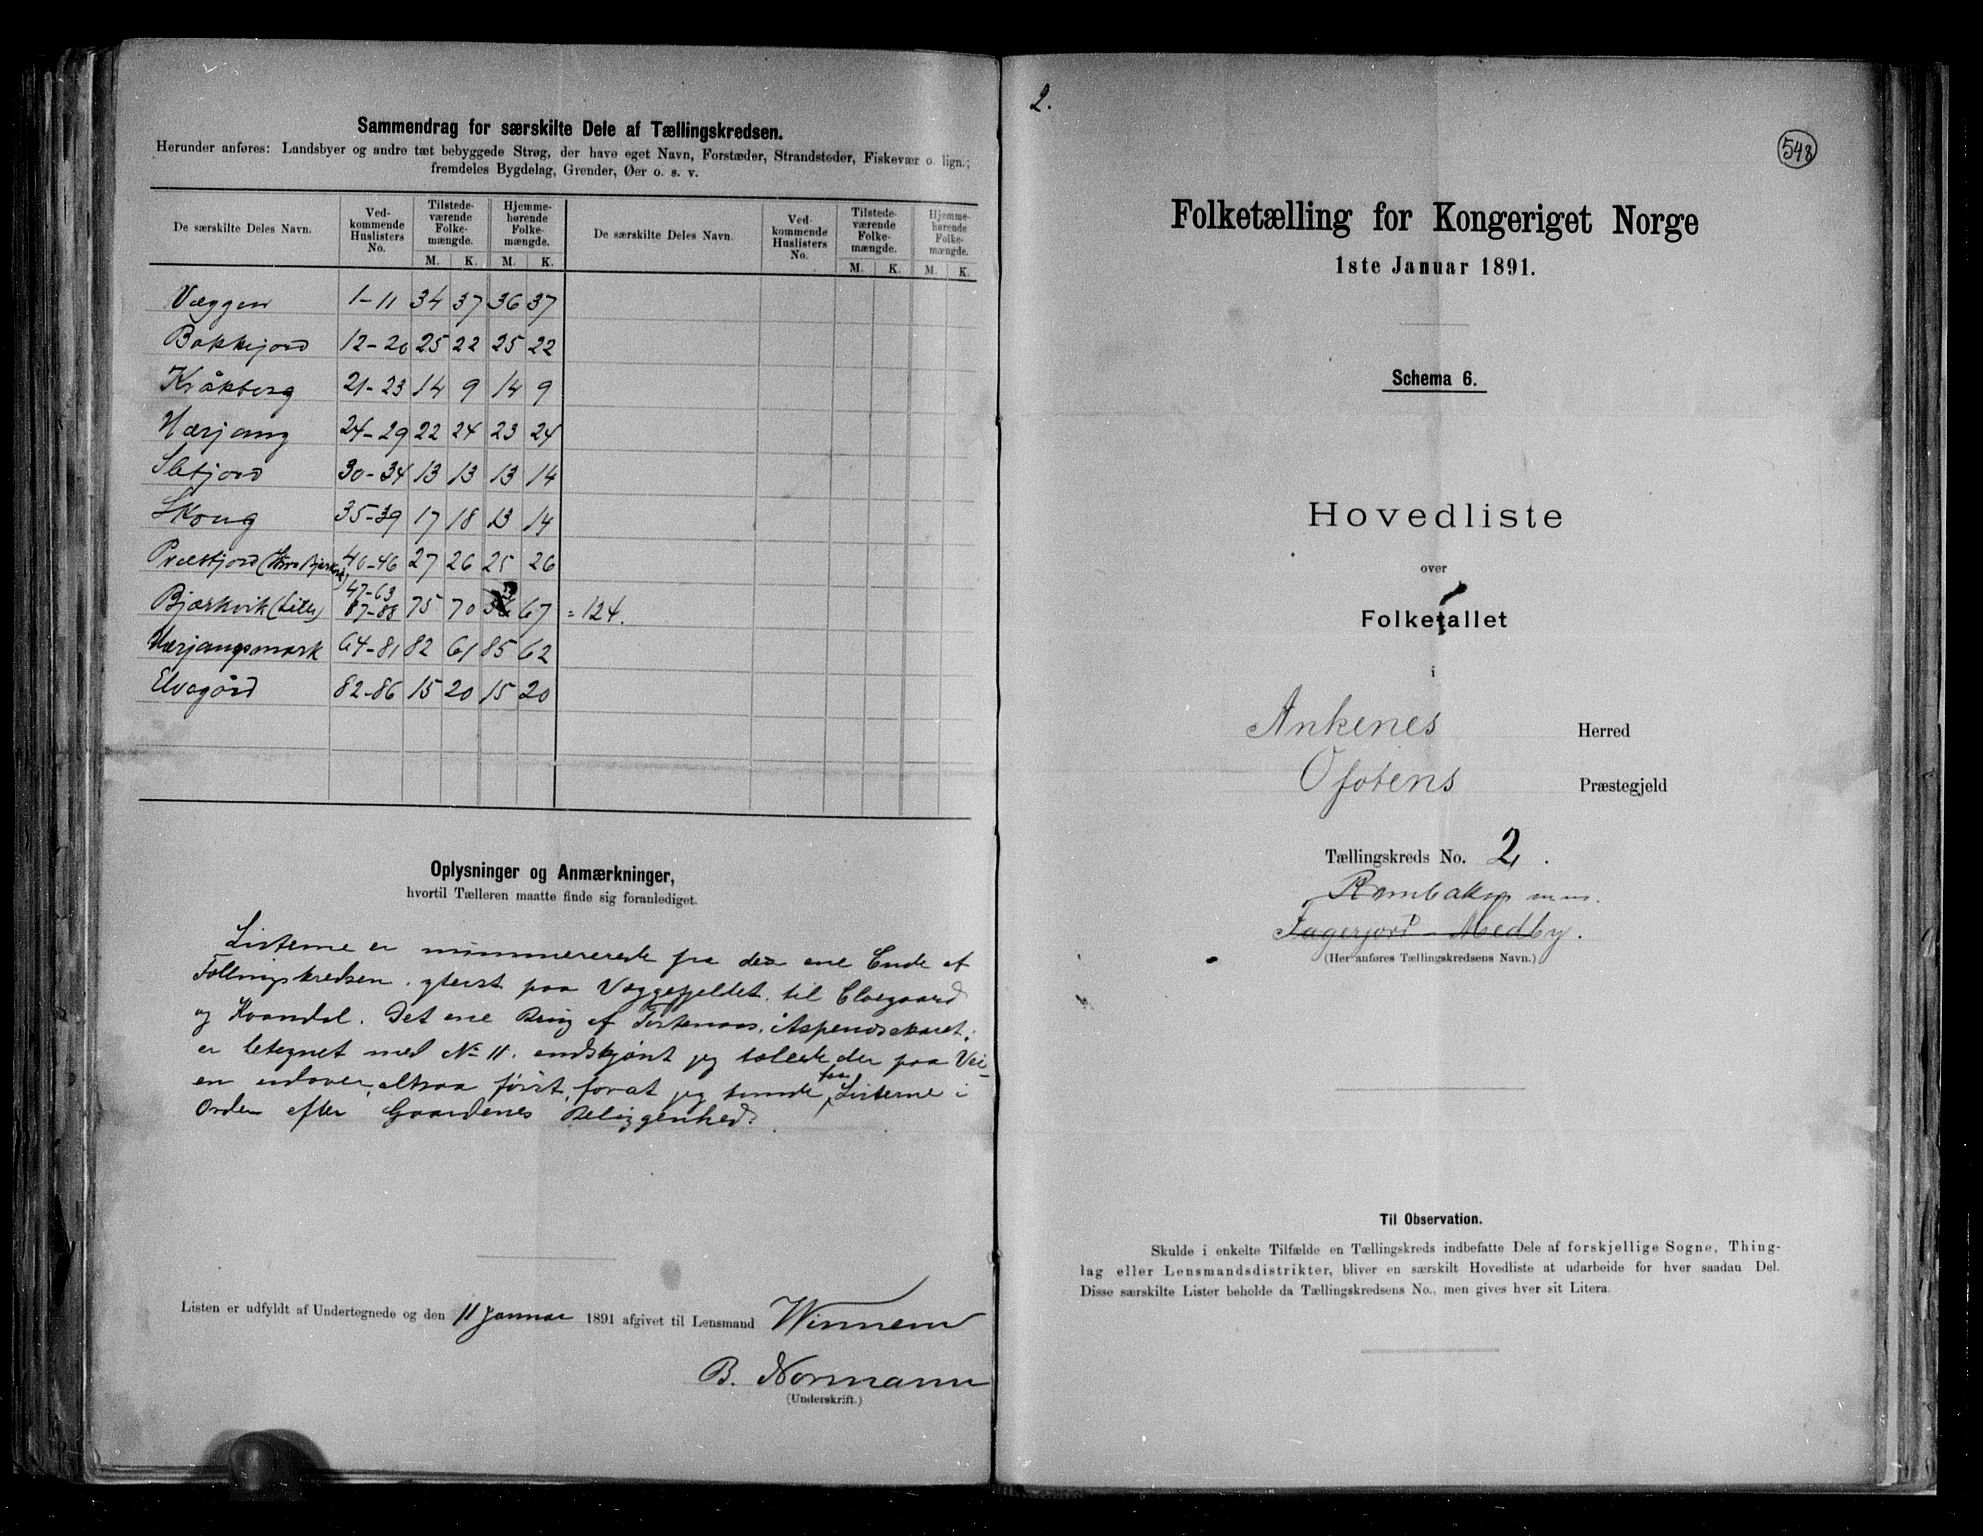 Sammendrag for særskilte Dele af Tællingskredsen.
Herunder anføres: Landsbyer og andre tæt bebyggede Strøg, der have eget Navn, Forstæder, Strandsteder, Fiskevær o. lign.;
fremdeles Bygdelag, Grender, Øer o. s. v.
De særskilte Deles Navn. Ved-kommende Huslisters No. Tilstede-værende Folke-mængde. Hjemme-hørende Folke-mængde. De særskilte Deles Navn. Ved-kommende Huslisters No. Tilstede-værende Folke-mængde. Hjemme-hørende Folke-mængde.
M. K. M. K. M. K. M. K.
Væggen 1-11 34 37 36 37
Bakkejord 12-20 25 22 25 22
Kråkberg 21-23 14 9 14 9
Hærjang 24-29 22 24 23 24
Sletjord 30-34 13 13 13 14
Skoug 35-39 17 18 13 14
Præstjord 40-46 27 26 25 26
Bjærkvik (Lille) 47-63 87-88 75 70 67 = 124.
Hærjangsmark 64-81 82 61 85 62
Elvegård 82-86 15 20 15 20
Oplysninger og Anmærkninger,
hvortil Tælleren maatte finde sig foranlediget.
Listerne er nummererede fra den ene Ende af
Tællingskredsen yterst paa Væggefjeldet til Elvegaard
og Kvandal. Det ene Brug af
er betegnet med No 11. endskjønt jeg talte der paa Vei-
en udover, altsaa først, forat jeg kunde faa Listerne i
Orden efter Gaardenes Beliggenhed.
Listen er udfyldt af Undertegnede og den 11 Januar 1891 afgivet til Lensmand Winnem
B. Normann
(Underskrift.)
2.
548
Folketælling for Kongeriget Norge
1ste Januar 1891.
Schema 6.
Hovedliste
over
Folketallet
i
Ankenes Herred
Ofotens Præstegjeld
Tællingskreds No. 2.
Rombaken m.m.
Fagerjord - Medby.
(Her anføres Tællingskredsens Navn.)
Til Observation.
Skulde i enkelte Tilfælde en Tællingskreds indbefatte Dele af forskjellige Sogne, Thing-
lag eller Lensmandsdistrikter, bliver en særskilt Hovedliste at udarbeide for hver saadan Del.
Disse særskilte Lister beholde da Tællingskredsens No., men gives hver sit Litera.